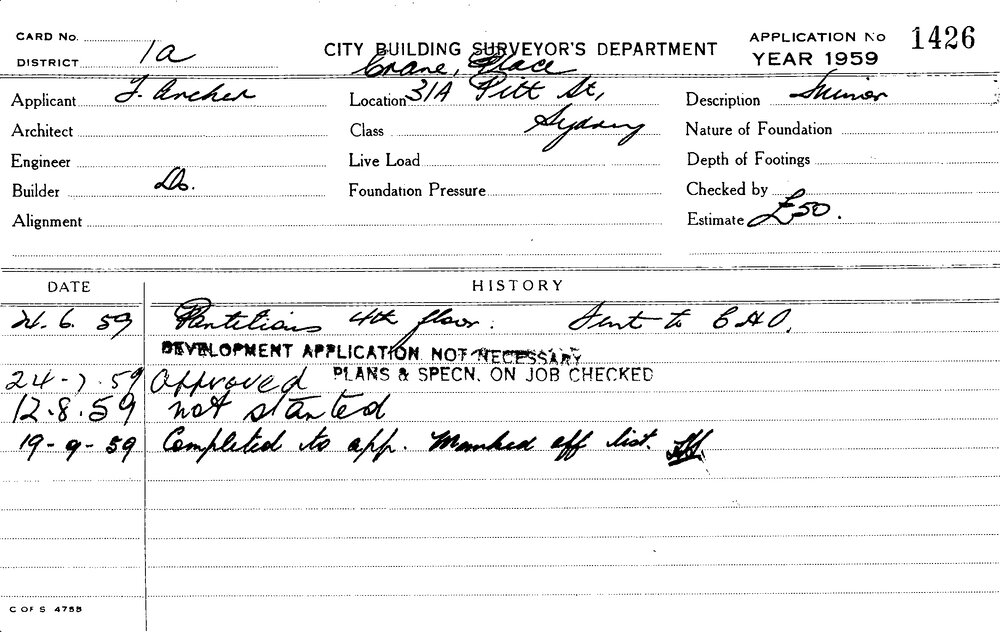 CARD No.
DISTRICT 1a
CITY BUILDING SURVEYOR'S DEPARTMENT
APPLICATION No 1426
YEAR 1959
Crane, Place
Applicant J. Archer
Location 31A Pitt St,
Description Minor
Architect
Class Sydney
Nature of Foundation
Engineer
Live Load
Depth of Footings
Builder Do.
Foundation Pressure
Checked by
Alignment
Estimate £50.
DATE HISTORY
6. 59 Partitions 4th floor. Sent to C.H.O.
DEVELOPMENT APPLICATION NOT NECESSARY
24-7-59 Approved PLANS & SPECN. ON JOB CHECKED
12.8.59 not started
19-9-59 Completed to app. Marked off list.
C OF S 475B